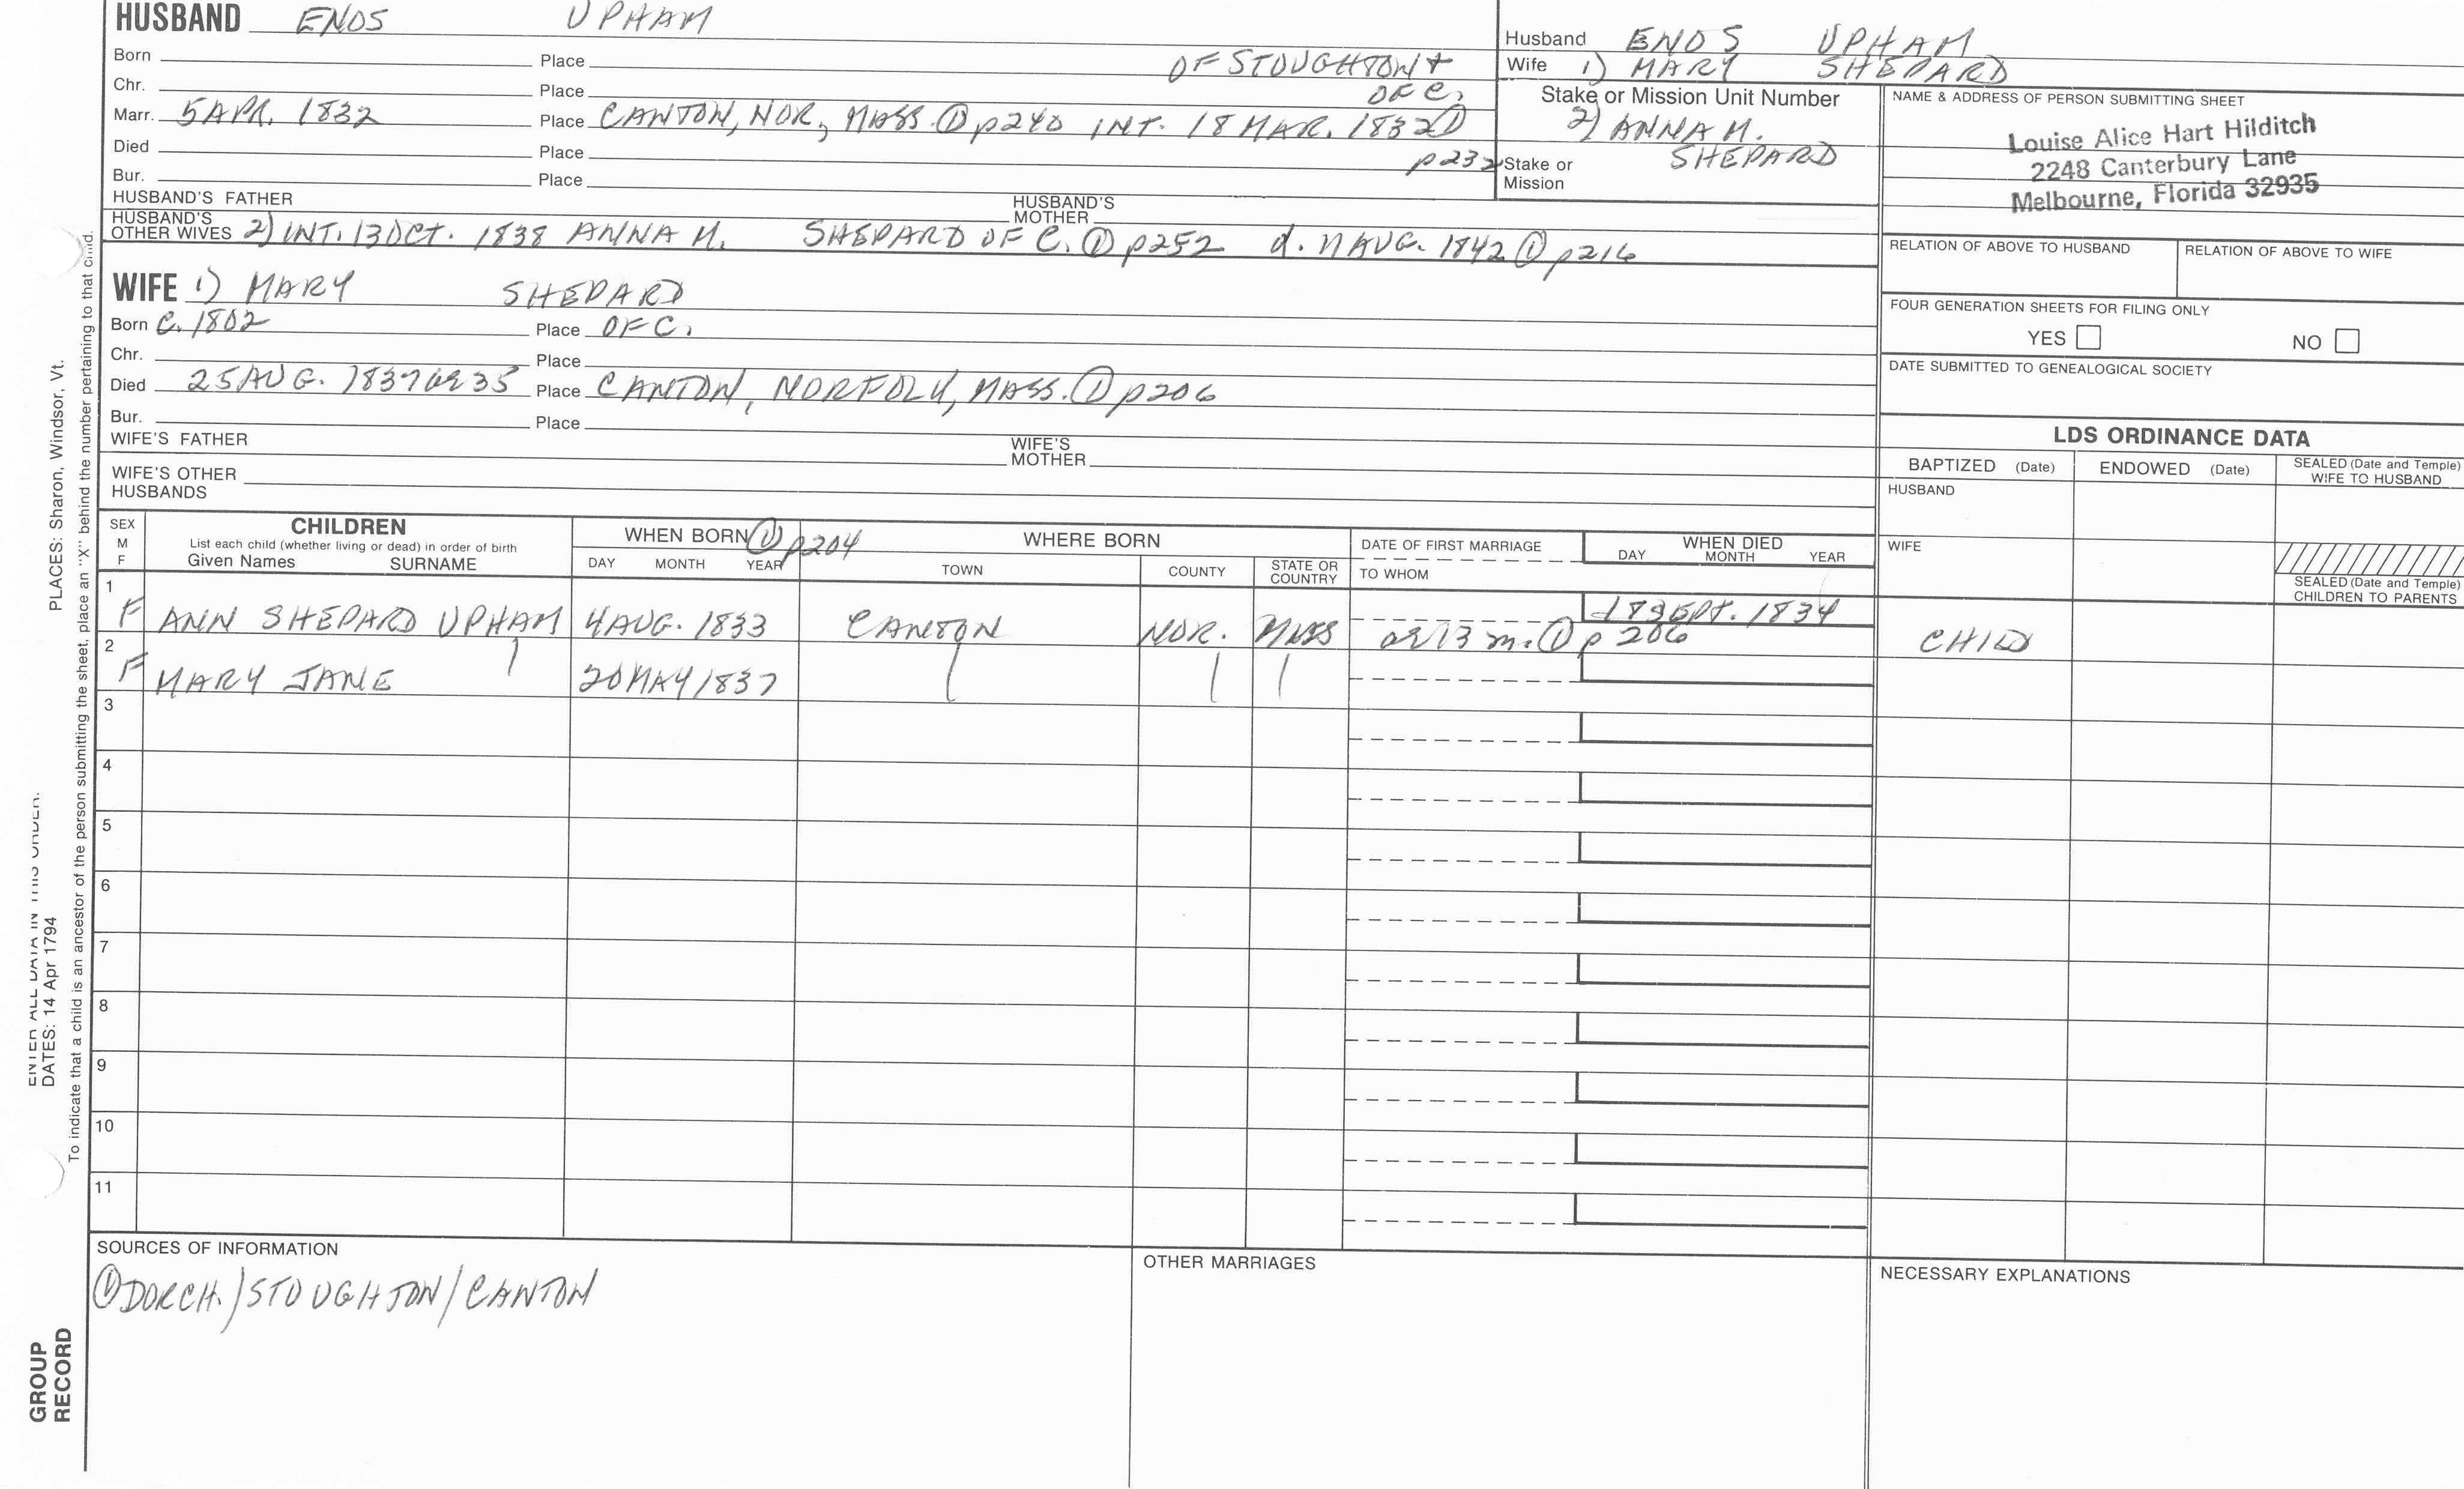 HUSBAND ENOS UPHAM
Born Place OF STOUGHTON &
Chr. Place OF C.
Marr. 5 APR. 1832 Place CANTON, NOR., MASS. ① p240 INT. 18 MAR. 1832 ①
Died Place p232
Bur. Place
HUSBAND'S FATHER HUSBAND'S MOTHER
HUSBAND'S OTHER WIVES 2) INT. 13 OCT. 1838 ANNA M. SHEPARD OF C. ① p252 d. AUG. 1842 ① p216
WIFE 1) MARY SHEPARD
Born C. 1802 Place OF C.
Chr. Place
Died 25 AUG. 1837 35 Place CANTON, NORFOLK, MASS. ① p206
Bur. Place
WIFE'S FATHER WIFE'S MOTHER
WIFE'S OTHER HUSBANDS
Husband ENOS UPHAM
Wife 1) MARY SHEPARD
Stake or Mission Unit Number
2) ANNA M. SHEPARD
Stake or Mission
NAME & ADDRESS OF PERSON SUBMITTING SHEET
Louise Alice Hart Hilditch
2248 Canterbury Lane
Melbourne, Florida 32935
RELATION OF ABOVE TO HUSBAND RELATION OF ABOVE TO WIFE
FOUR GENERATION SHEETS FOR FILING ONLY
YES NO
DATE SUBMITTED TO GENEALOGICAL SOCIETY
LDS ORDINANCE DATA
BAPTIZED (Date) ENDOWED (Date) SEALED (Date and Temple) WIFE TO HUSBAND
HUSBAND
WIFE
SEALED (Date and Temple) CHILDREN TO PARENTS
SEX M F
CHILDREN
List each child (whether living or dead) in order of birth
Given Names SURNAME
WHEN BORN ① p204
DAY MONTH YEAR
WHERE BORN
TOWN COUNTY STATE OR COUNTRY
DATE OF FIRST MARRIAGE
TO WHOM
WHEN DIED
DAY MONTH YEAR
1 F ANN SHEPARD UPHAM 4 AUG. 1833 CANTON NOR. MASS SEPT. 1834
13 m. ① p 206 CHILD
2 F MARY JANE 20 MAY 1837
3
4
5
6
7
8
9
10
11
SOURCES OF INFORMATION
① DORCH./STOUGHTON/CANTON
OTHER MARRIAGES
NECESSARY EXPLANATIONS
PLACES: Sharon, Windsor, Vt.
ENTER ALL DATA IN THIS ORDER:
DATES: 14 Apr 1794
To indicate that a child is an ancestor of the person submitting the sheet, place an "X" behind the number pertaining to that child.
GROUP
RECORD